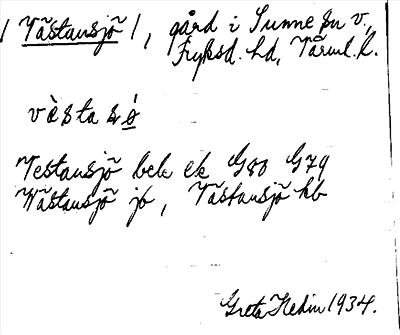 / Västansjö /, gård i Sunne sn v.,
Fryksd. hd, Värml. l.
vèsta sǿ
Vestansjö bek ek G80 G79
Wästansjö jb, Västansjö kb
Greta Hedin 1934.